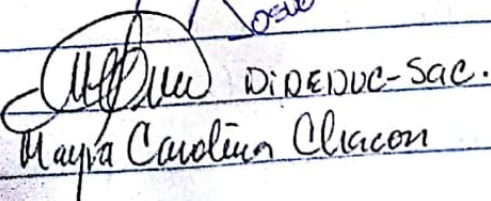 DIDEDUC-Sac.
Mayra Carolina Chacon